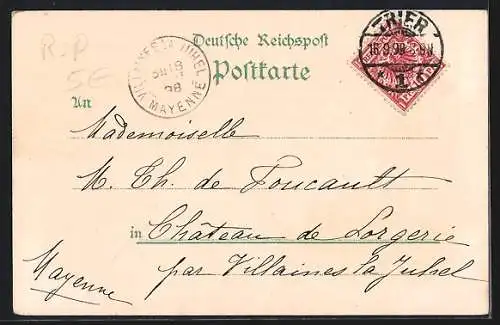 R-P
5E
Deutsche Reichspost
Postkarte
VILLAINES LA JUHEL
18
98
MAYENNE
TRIER
16.9.98
1
An
Mademoiselle
M. Th. de Foucault
in Château de Lorgerie
par Villaines la Juhel
Mayenne